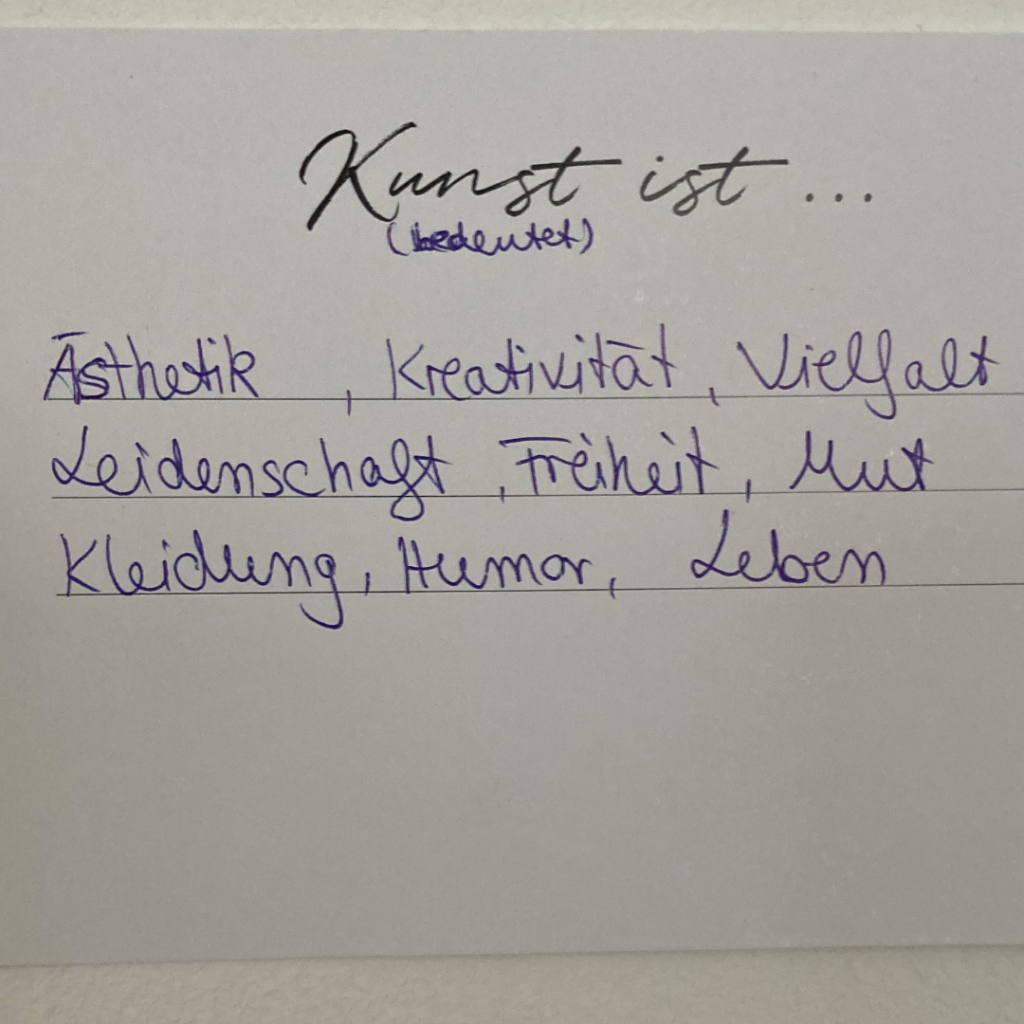 Kunst ist ...
(bedeutet)
Ästhetik , Kreativität, Vielfalt
Leidenschaft, Freiheit, Mut
Kleidung, Humor, Leben